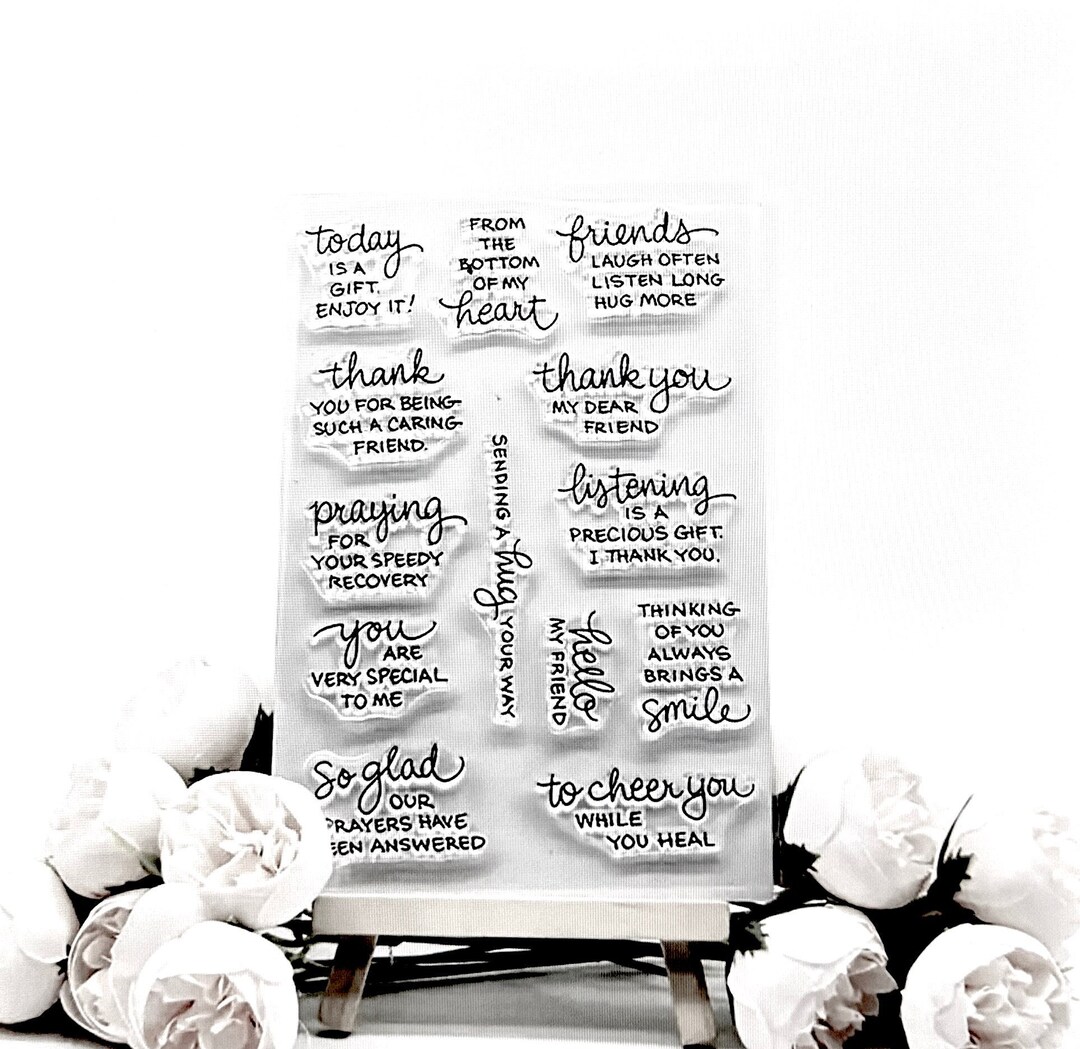 today
IS A
GIFT.
ENJOY IT!
FROM
THE
BOTTOM
OF MY
heart
friends
LAUGH OFTEN
LISTEN LONG
HUG MORE
thank
YOU FOR BEING
SUCH A CARING
FRIEND.
thank you
MY DEAR
FRIEND
SENDING A hug YOUR WAY
praying
FOR
YOUR SPEEDY
RECOVERY
listening
IS A
PRECIOUS GIFT.
I THANK YOU.
you
ARE
VERY SPECIAL
TO ME
hello
MY FRIEND
THINKING
OF YOU
ALWAYS
BRINGS A
smile
so glad
OUR
PRAYERS HAVE
EEN ANSWERED
to cheer you
WHILE
YOU HEAL